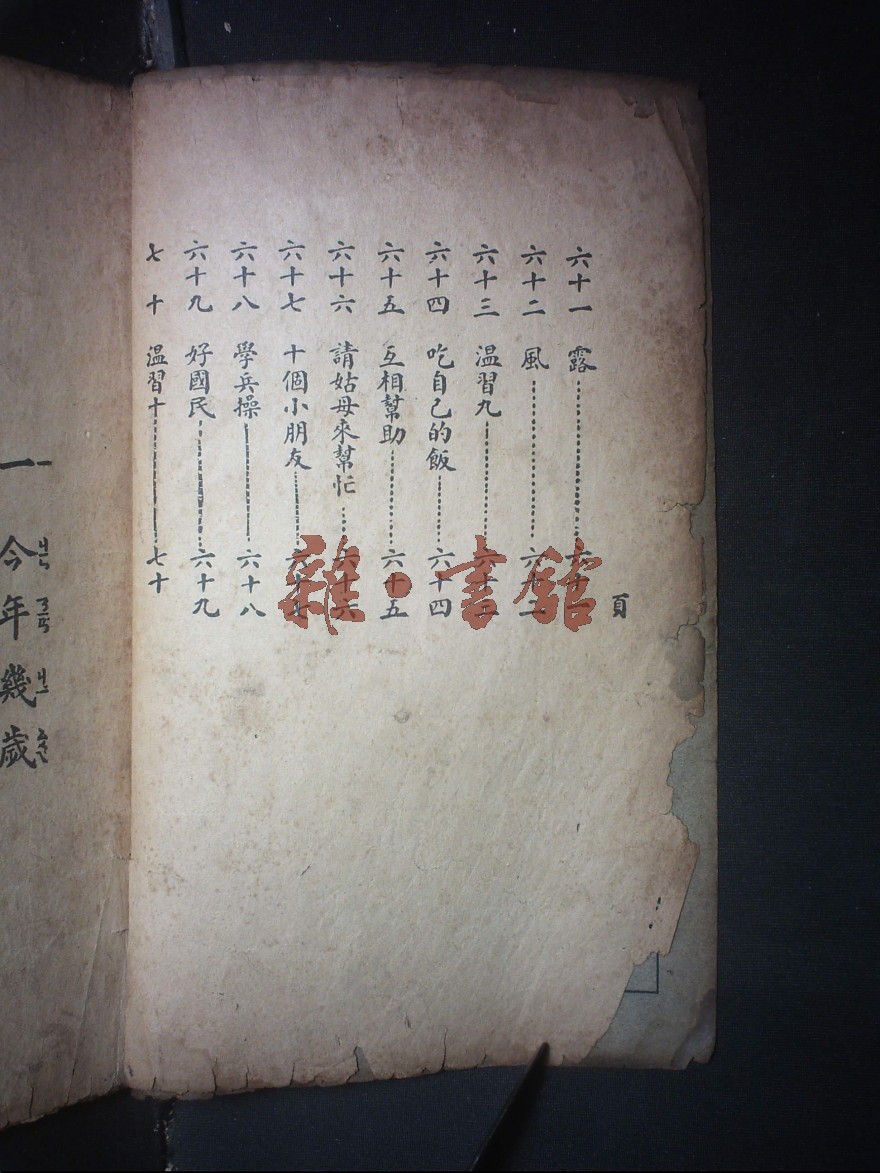 頁
六十一　露………………六十一
六十二　風………………六十二
六十三　温習九………………六十三
六十四　吃自己的飯………六十四
六十五　互相幫助………六十五
六十六　請姑母來幫忙……六十六
六十七　十個小朋友………六十七
六十八　學兵操………………六十八
六十九　好國民………………六十九
七十　温習十………………七十
雜·書館
一
今年幾歲